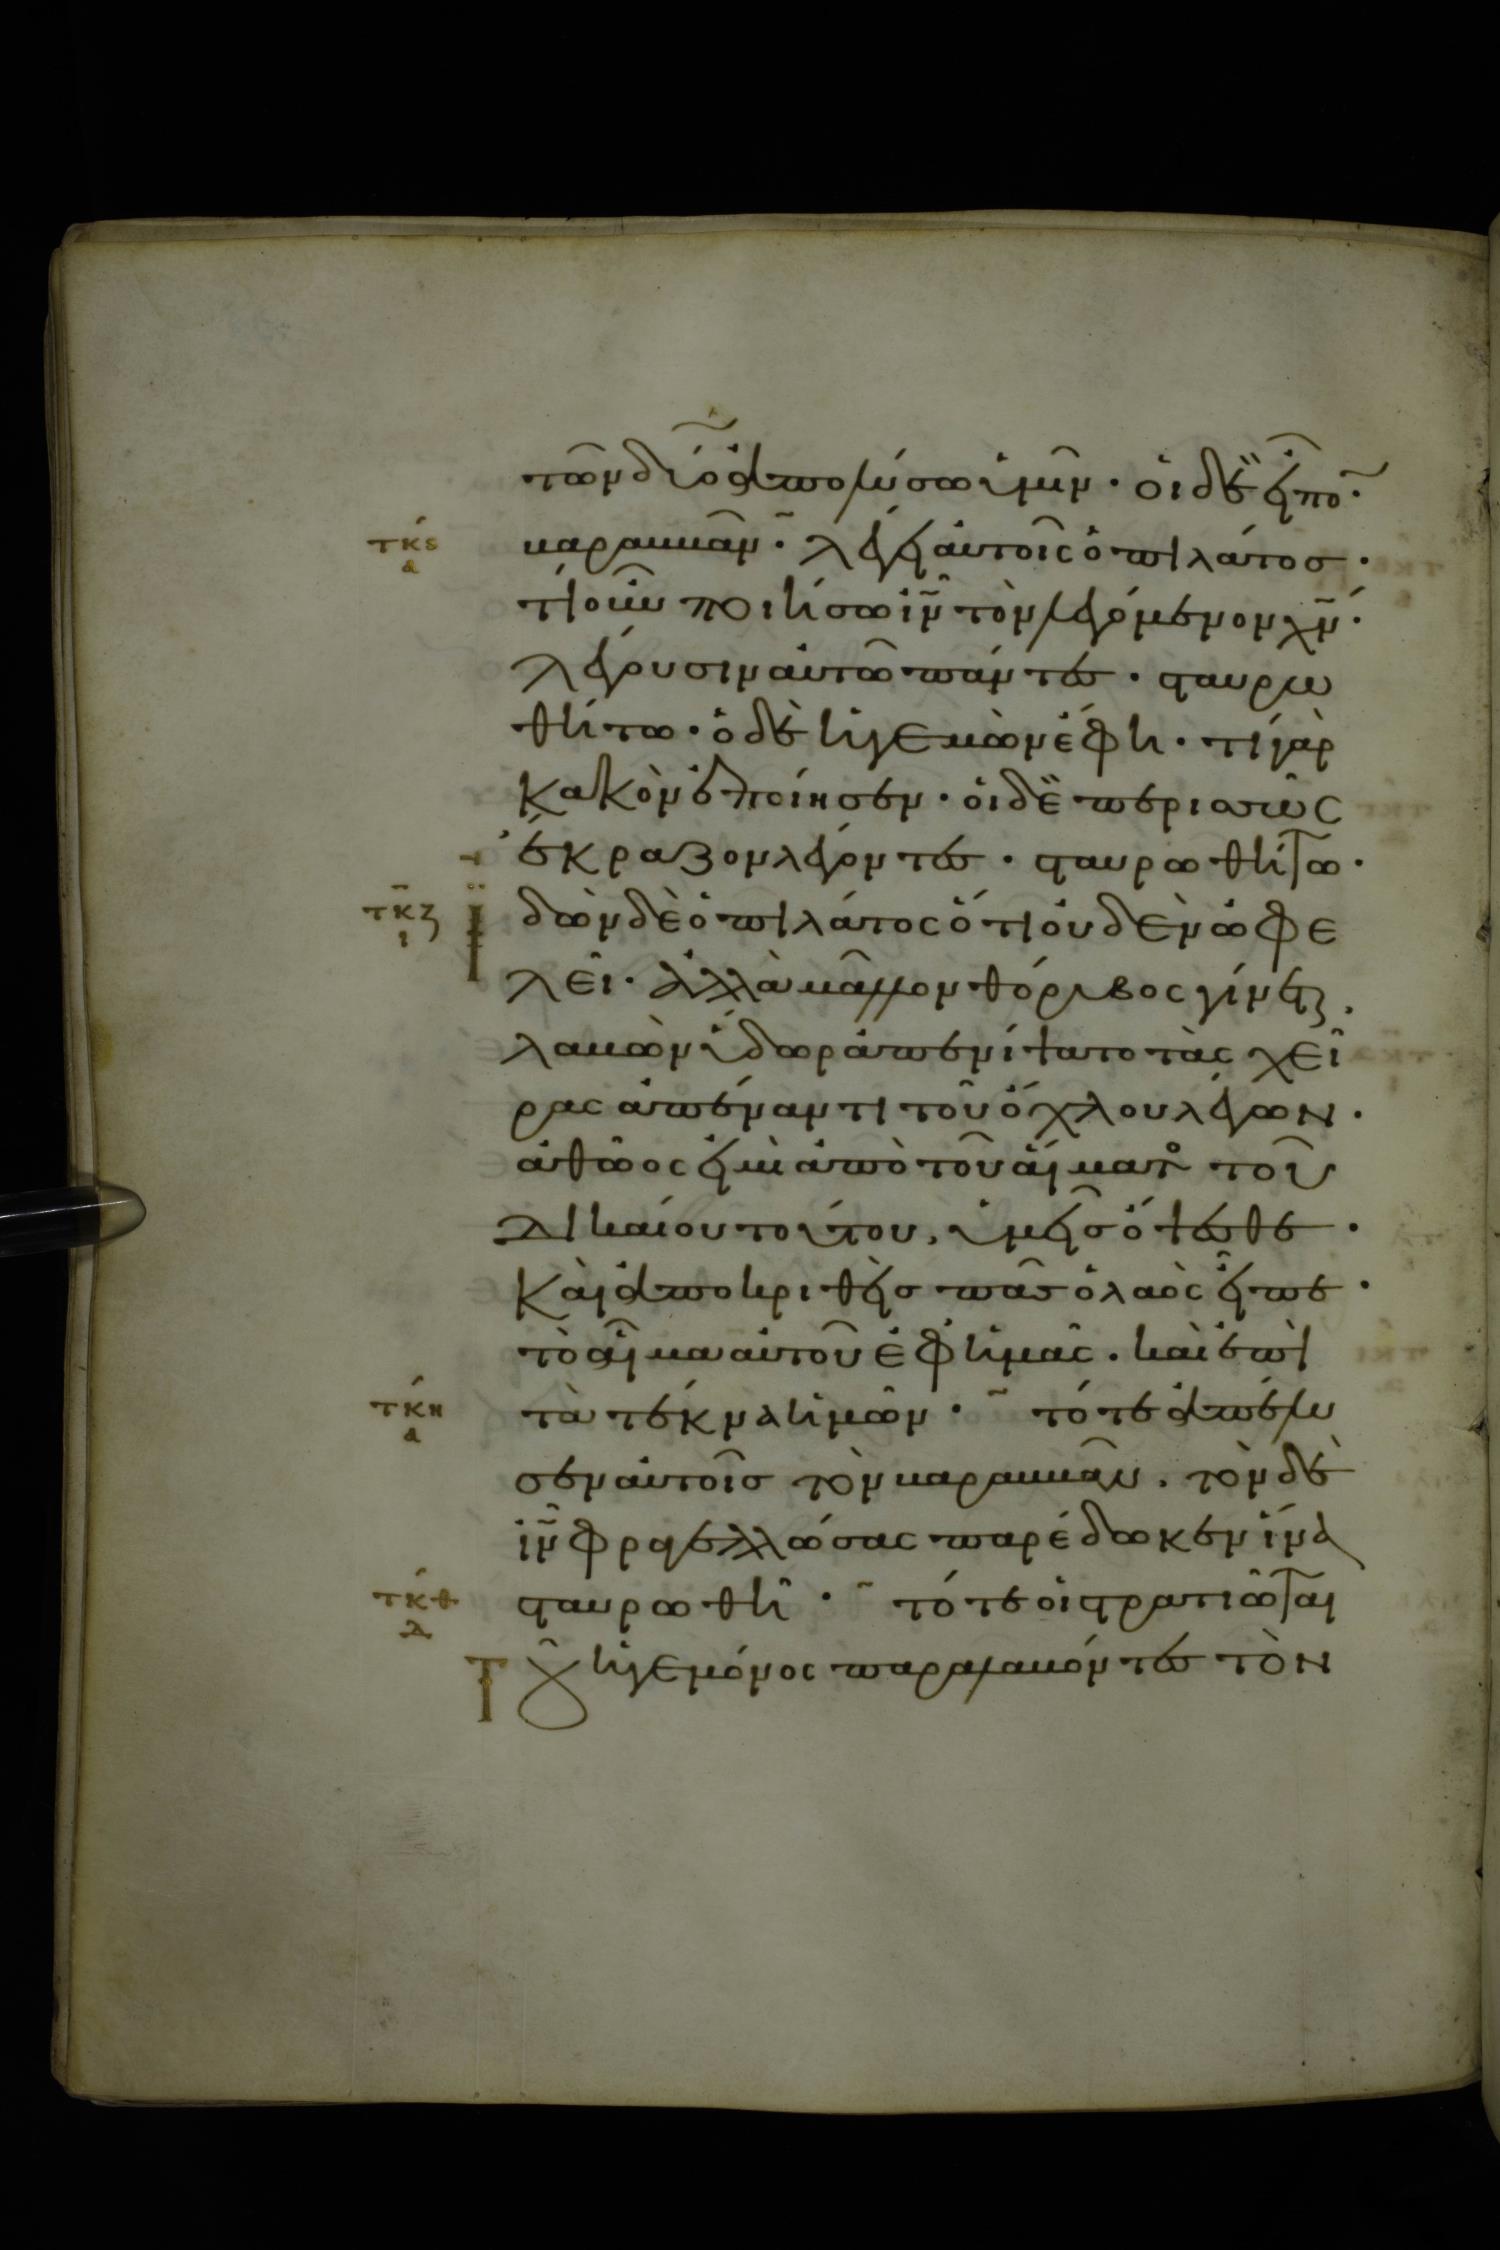 τῶν δύο ἀπολύσω ὑμῖν · οἱ δὲ εἶπο͂ ·
τκϛ α βαραββᾶν · λέγει αὐτοῖς ὁ πιλάτος ·
τί οὖν ποιήσω ιν̅ τὸν λεγόμενον χν̅ ·
λέγουσιν αὐτῶ πάντες · σταυρω
θήτω · ὁ δὲ ἡγεμὼν ἔφη · τί γὰρ
κακὸν ἐποίησεν · οἱ δὲ περισσῶς
ἔκραζον λέγοντες · σταυρωθήτω ·
τκζ ι Ϊδὼν δὲ ὁ πιλάτος ὅτι οὐδὲν ὠφε
λεῖ · ἀλλὰ μᾶλλον θόρυβος γίνεται,
λαβὼν ὕδωρ ἀπενίψατο τὰς χεῖ
ρας ἀπέναντι τοῦ ὄχλου λέγων ·
ἀθῶός εἰμι ἀπὸ τοῦ αἵματος τοῦ
δικαίου τούτου, ὑμεῖς ὄψεσθε ·
καὶ ἀποκριθεὶς πᾶς ὁ λαὸς εἶπε ·
τὸ αἷμα αὐτοῦ ἐφ ἡμᾶς · καὶ ἐπὶ
τκη α τὰ τέκνα ἡμῶν · τότε ἀπέλυ
σεν αὐτοῖς τὸν βαραββᾶν, τὸν δὲ
ιν̅ φραγελλώσας παρέδωκεν ἵνα
τκθ δ σταυρωθῆ · τότε οἱ στρατιῶται
Τοῦ ἡγεμόνος παραλαβόντες τὸν